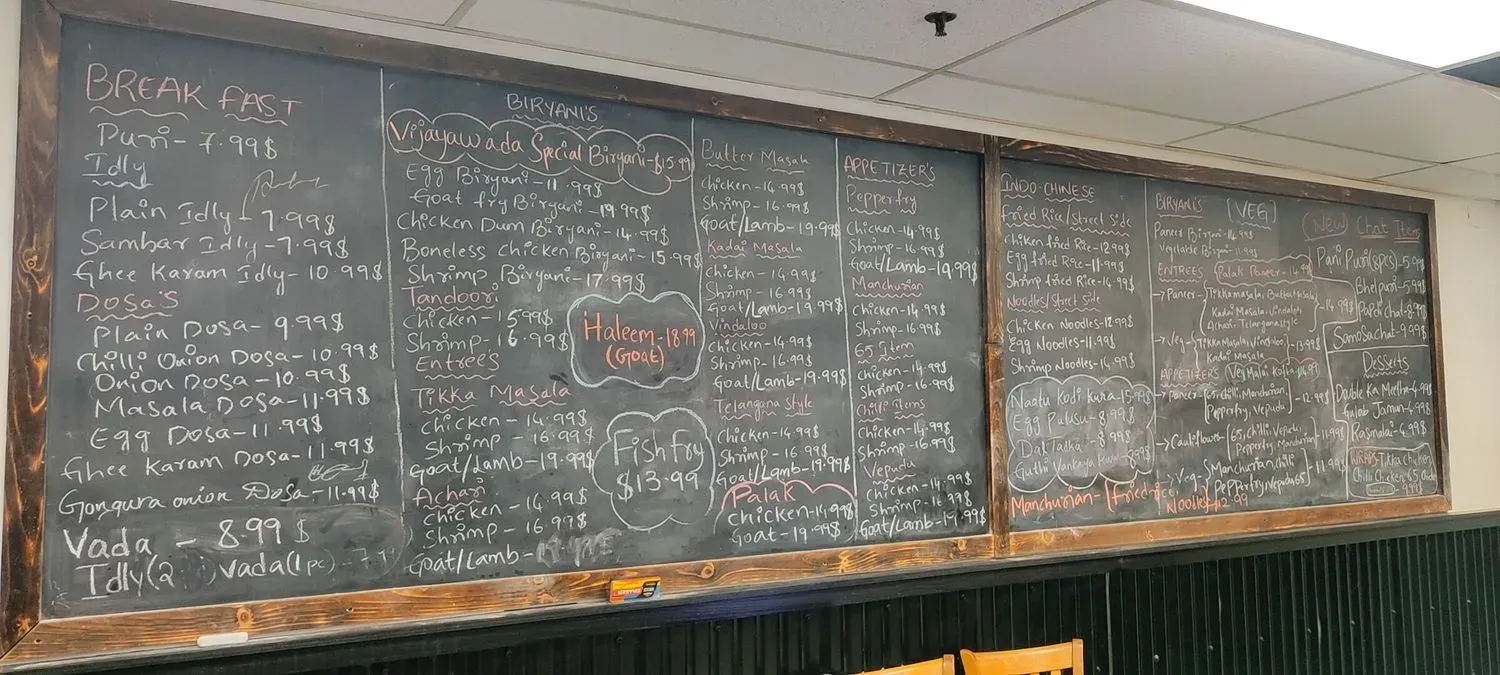 BREAK FAST
Puri - 7.99$
Idly
Plain Idly - 7.99$
Sambar Idly - 7.99$
Ghee Karam Idly - 10.99$
DOSA'S
Plain Dosa - 9.99$
Chilli Onion Dosa - 10.99$
Onion Dosa - 10.99$
Masala Dosa - 11.99$
Egg Dosa - 11.99$
Ghee Karam Dosa - 11.99$
Gongura onion Dosa - 11.99$
Vada - 8.99 $
Idly(2 ) Vada(1 pc) -
BIRYANI'S
Vijayawada Special Biryani - $15.99
Egg Biryani - 11.99$
Goat fry Biryani - 19.99$
Chicken Dum Biryani - 14.99$
Boneless Chicken Biryani - 15.99$
Shrimp Biryani - 17.99$
Tandoori
Chicken - 15.99$
Shrimp - 16.99$
Entree's
Tikka Masala
Chicken - 14.99$
Shrimp - 16.99$
Goat/Lamb - 19.99$
Achari
Chicken - 14.99$
Shrimp - 16.99$
Goat/Lamb -
Haleem - 18.99
(Goat)
Fish Fry
$13.99
Butter Masala
Chicken - 14.99$
Shrimp - 16.99$
Goat/Lamb - 19.99$
Kadai Masala
Chicken - 14.99$
Shrimp - 16.99$
Goat/Lamb - 19.99$
Vindaloo
Chicken - 14.99$
Shrimp - 16.99$
Goat/Lamb - 19.99$
Telangana Style
Chicken - 14.99$
Shrimp - 16.99$
Goat/Lamb - 19.99$
Palak
Chicken - 14.99$
Goat - 19.99$
APPETIZER'S
Pepper fry
Chicken - 14.99$
Shrimp - 16.99$
Goat/Lamb - 19.99$
Manchurian
Chicken - 14.99$
Shrimp - 16.99$
65 Item
Chicken - 14.99$
Shrimp - 16.99$
Chilli Items
Chicken - 14.99$
Shrimp - 16.99$
Vepudu
Chicken - 14.99$
Shrimp - 16.99$
Goat/Lamb - 19.99$
INDO-CHINESE
Fried Rice/Street Side
Chicken fried Rice - 12.99$
Egg fried Rice - 11.99$
Shrimp fried Rice - 14.99$
Noodles/Street Side
Chicken Noodles - 12.99$
Egg Noodles - 11.99$
Shrimp Noodles - 14.99$
Naatu Kodi Kura - 15.99$
Egg Pulusu - 8.99$
Dal Tadka - 8.99$
Guthi Vankaya Kura
Manchurian - [fried rice,
Noodles - 12.99
BIRYANI'S [VEG]
Paneer Biryani - 14.99$
Vegetable Biryani - 11.99$
ENTREES (Palak Paneer - 14.99
→ Paneer - Tikka masala, Butter Masala,
Kadai Masala, Vindaloo,
Achari, Telangana style - 14.99$
→ Veg - Tikka Masala, Vindloo, - 13.99$
Kadai Masala
APPETIZERS (Veg Malai Kofta - 14.99)
→ Paneer - 65, chilli, Manchurian, - 12.99$
Pepperfry, Vepudu
→ Cauliflower - 65, Chilli, Vepudu, - 11.99$
Pepperfry, Manchurian
→ Veg - Manchurian, chilli, - 11.99$
Pepperfry, Vepudu, 65
(New) Chat Items
Pani Puri (8pcs) - 5.99$
Bhelpuri - 5.99$
Papdi chat - 8.99$
Samosa chat - 9.99$
Desserts
Double Ka Meetha - 4.99$
Gulab Jamun - 4.99$
Rasmalai - 4.99$
WRAPS Tikka Chicken
Chilli Chicken, 65 Chicken
9.99$